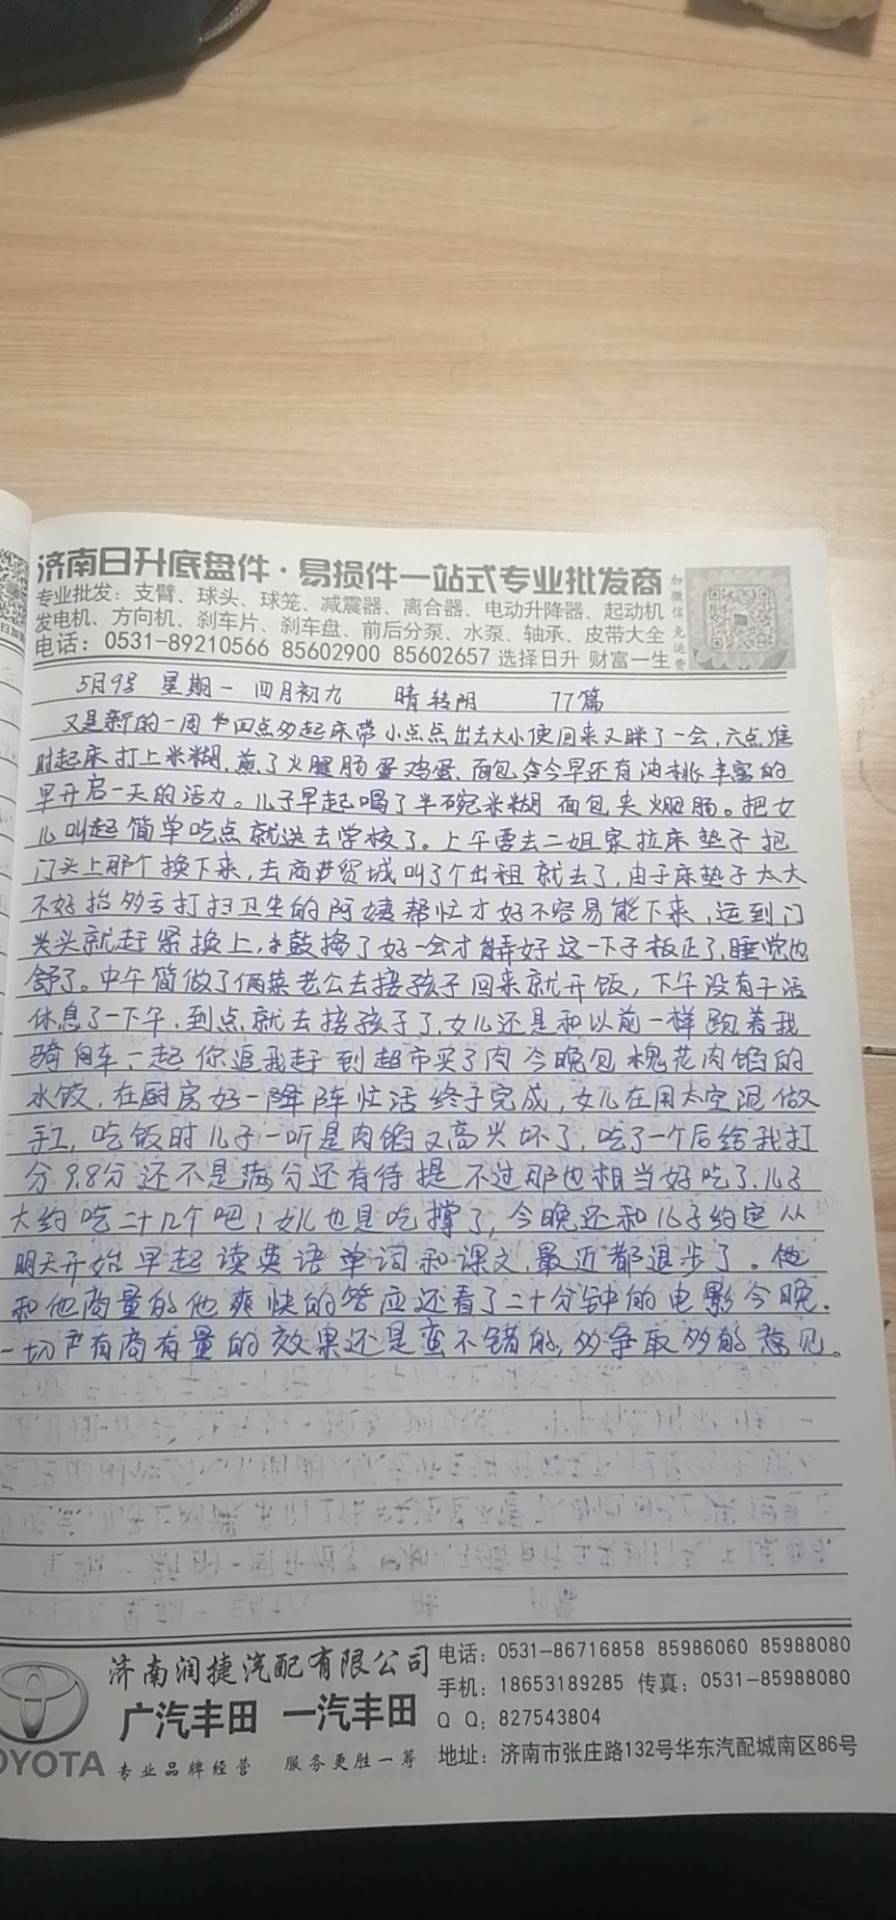 济南日升底盘件·易损件一站式专业批发商
专业批发：支臂、球头、球笼、减震器、离合器、电动升降器、起动机
发电机、方向机、刹车片、刹车盘、前后分泵、水泵、轴承、皮带大全
电话：0531-89210566 85602900 85602657 选择日升 财富一生
加微信免运费
5月9号 星期一 四月初九 晴转阴 77篇
又是新的一周 四点多起床带小点点出去大小便回来又眯了一会，六点准
时起床打上米糊，煎了火腿肠蛋鸡蛋、面包 今早还有油桃丰富的
早开启一天的活力。儿子早起喝了半碗米糊 面包夹火腿肠。把女
儿叫起简单吃点就送去学校了。上午要去二姐家拉床垫子把
门头上那个换下来，去商贸城叫了个出租就去了，由于床垫子太大
不好抬多亏打扫卫生的阿姨帮忙才好不容易能下来，运到门
头就赶紧换上，鼓捣了好一会才弄好这一下子板正了，睡觉也
舒了。中午简做了俩菜老公去接孩子回来就开饭，下午没有干活
休息了一下午，到点就去接孩子了，女儿还是和以前一样跑着我
骑自车，一起你追我赶到超市买了肉今晚包槐花肉馅的
水饺，在厨房好一阵忙活终于完成，女儿在用太空泥做
手工，吃饭时儿子一听是肉馅又高兴坏了，吃了一个后给我打
分9.8分还不是满分还有待提不过那也相当好吃了，儿子
大约吃二十几个吧！女儿也是吃撑了，今晚还和儿子约定从
明天开始早起读英语单词和课文，最近都退步了。他
和他商量的他爽快的答应还看了二十分钟的电影今晚．
一切有商有量的效果还是蛮不错的，多争取多的意见。
济南润捷汽配有限公司
广汽丰田 一汽丰田
TOYOTA 专业品牌经营 服务更胜一筹
电话：0531-86716858 85986060 85988080
手机：18653189285 传真：0531-85988080
Q Q：827543804
地址：济南市张庄路132号华东汽配城南区86号